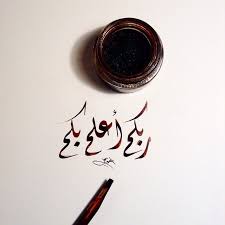 ربكم أعلم بكم